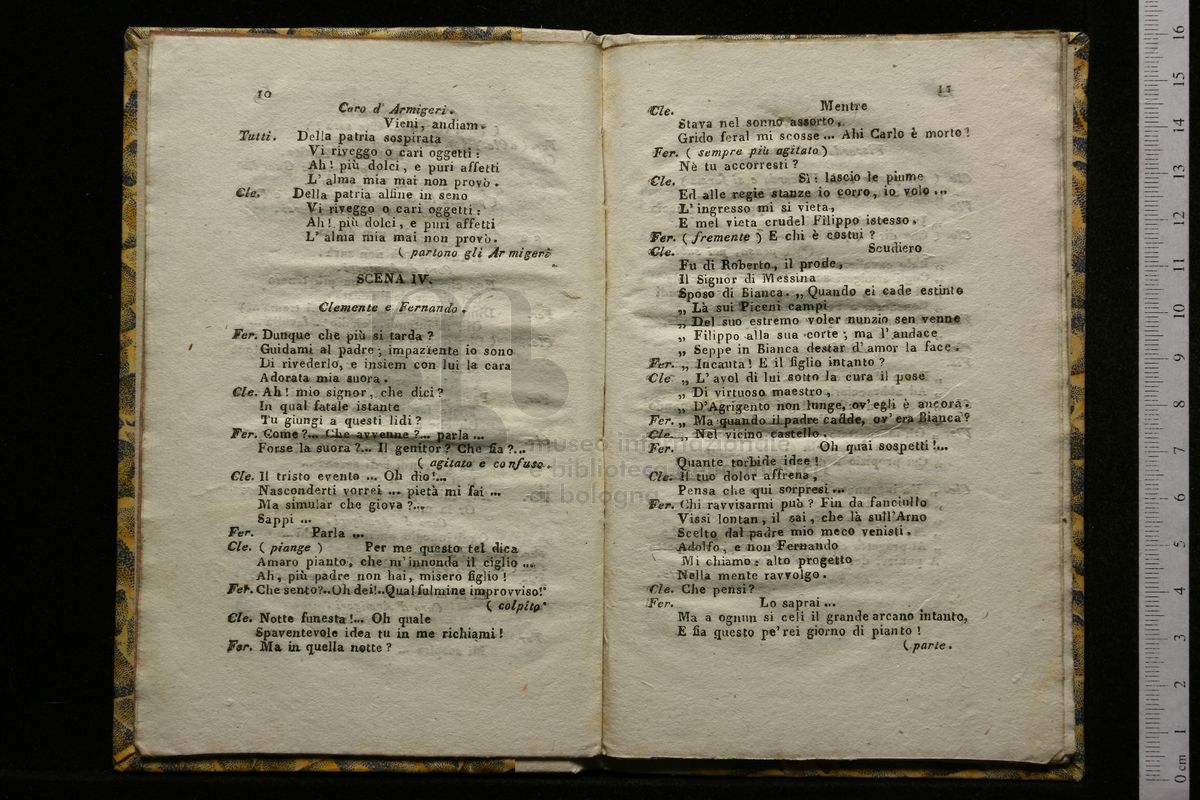 10
Coro d' Armigeri.
Vieni, andiam.
Tutti. Della patria sospirata
Vi riveggo o cari oggetti:
Ah! più dolci, e puri affetti
L' alma mia mai non provò.
Cle. Della patria alfine in seno
Vi riveggo o cari oggetti:
Ah! più dolci, e puri affetti
L' alma mia mai non provò.
( partono gli Armigeri
SCENA IV.
Clemente e Fernando.
Fer. Dunque che più si tarda?
Guidami al padre; impaziente io sono
Di rivederlo, e insiem con lui la cara
Adorata mia suora.
Cle. Ah! mio signor, che dici?
In qual fatale istante
Tu giungi a questi lidi?
Fer. Come?... Che avvenne?... parla ...
Forse la suora?... Il genitor? Che fia?...
( agitato e confuso.
Cle. Il tristo evento ... Oh dio!...
Nasconderti vorrei ... pietà mi fai ...
Ma simular che giova?...
Sappi ...
Fer. Parla ...
Cle. ( piange ) Per me questo tel dica
Amaro pianto, che m'innonda il ciglio ...
Ah, più padre non hai, misero figlio!
Fer. Che sento?..Oh dei!..Qual fulmine improvviso!
( colpito
Cle. Notte funesta!... Oh quale
Spaventevole idea tu in me richiami!
Fer. Ma in quella notte?
11
Cle. Mentre
Stava nel sonno assorto,
Grido feral mi scosse ... Ahi Carlo è morto!
Fer. ( sempre più agitato )
Nè tu accorresti?
Cle. Sì: lascio le piume
Ed alle regie stanze io corro, io volo ...
L'ingresso mi si vieta,
E mel vieta crudel Filippo istesso.
Fer. ( fremente ) E chi è costui?
Cle. Scudiero
Fu di Roberto, il prode,
Il Signor di Messina
Sposo di Bianca. „ Quando ei cade estinto
„ Là sui Piceni campi
„ Del suo estremo voler nunzio sen venne
„ Filippo alla sua corte; ma l'audace
„ Seppe in Bianca destar d'amor la face.
Fer. „ Incauta! E il figlio intanto?
Cle „ L'avol di lui sotto la cura il pose
„ Di virtuoso maestro,
„ D'Agrigento non lunge, ov'egli è ancora.
Fer. „ Ma quando il padre cadde, ov'era Bianca?
Cle. „ Nel vicino castello.
Fer. Oh quai sospetti!...
Quante torbide idee!
Cle. Il tuo dolor affrena,
Pensa che qui sorpresi ...
Fer. Chi ravvisarmi può? Fin da fanciullo
Vissi lontan, il sai, che là sull'Arno
Scelto dal padre mio meco venisti.
Adolfo, e non Fernando
Mi chiamo: alto progetto
Nella mente ravvolgo.
Cle. Che pensi?
Fer. Lo saprai ...
Ma a ognun si celi il grande arcano intanto,
E fia questo pe'rei giorno di pianto!
( parte.
museo internazionale
biblioteca
di bologna
0 cm 1 2 3 4 5 6 7 8 9 10 11 12 13 14 15 16